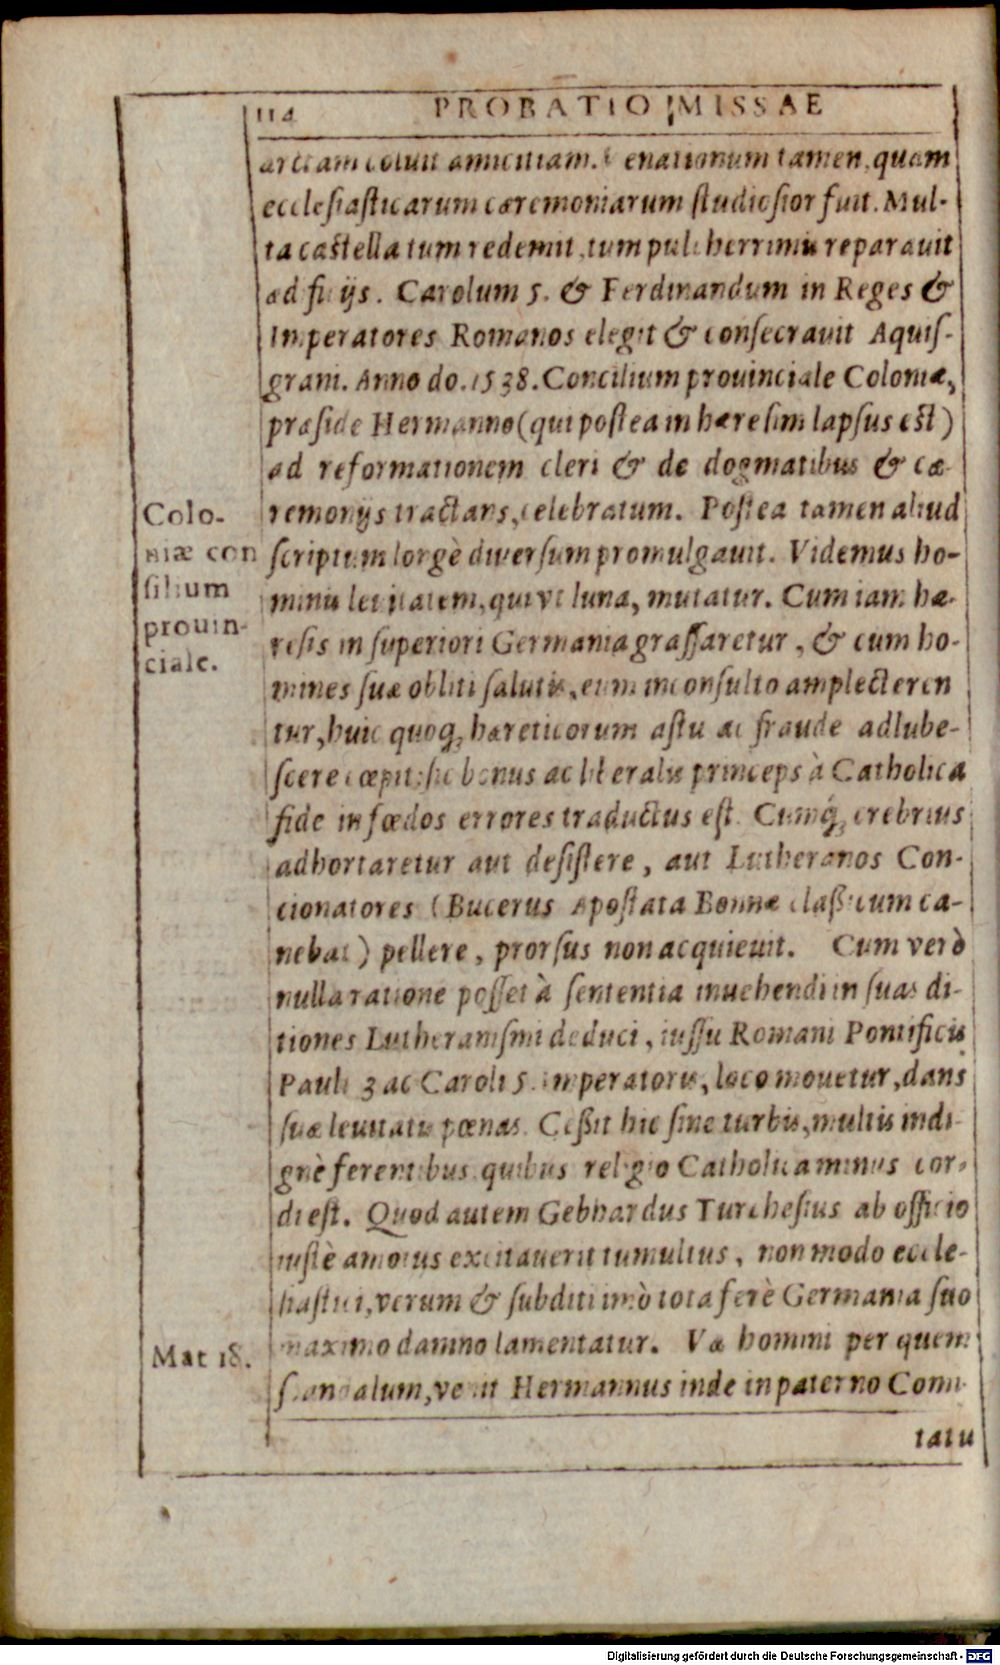 114 PROBATIO MISSAE
arctam coluit amicitiam. Venationum tamen, quam
ecclesiasticarum cæremoniarum studiosior fuit. Mul-
ta castella tum redemit, tum pulcherrimis reparauit
ædificijs. Carolum 5. & Ferdinandum in Reges &
Imperatores Romanos elegit & consecrauit Aquis-
grani. Anno do. 1538. Concilium prouinciale Coloniæ,
præside Hermanno (qui postea in hæresim lapsus est)
ad reformationem cleri & de dogmatibus & cæ-
remonijs tractans, celebratum. Postea tamen aliud
scriptum longè diuersum promulgauit. Videmus ho-
minis leuitatem, qui vt luna, mutatur. Cum iam hæ-
resis in superiori Germania grassaretur, & cum ho-
mines suæ obliti salutis, eum inconsulto amplecteren
tur, huic quoq; hæreticorum astu ac fraude adlube-
scere cœpit: sic bonus ac liberalis princeps à Catholica
fide in fœdos errores traductus est. Cumq; crebrius
adhortaretur aut desistere, aut Lutheranos Con-
cionatores (Bucerus Apostata Bonnæ classicum ca-
nebat) pellere, prorsus non acquieuit. Cum verò
nulla ratione posset à sententia inuehendi in suas di-
tiones Lutheranismi deduci, iussu Romani Pontificis
Pauli 3 ac Caroli 5. imperatoris, loco mouetur, dans
suæ leuitatis pœnas. Cessit hic sine turbis, multis indi-
gnè ferentibus quibus religio Catholica minus cor-
di est. Quod autem Gebhardus Turchesius ab officio
iustè amotus excitauerit tumultus, non modo eccle-
siastici, verum & subditi imò tota ferè Germania suo
maximo damno lamentatur. Væ homini per quem
scandalum, venit Hermannus inde in paterno Comi-
tatu
Colo-
niæ con
silium
prouin-
ciale.
Mat 18.
Digitalisierung gefördert durch die Deutsche Forschungsgemeinschaft - DFG